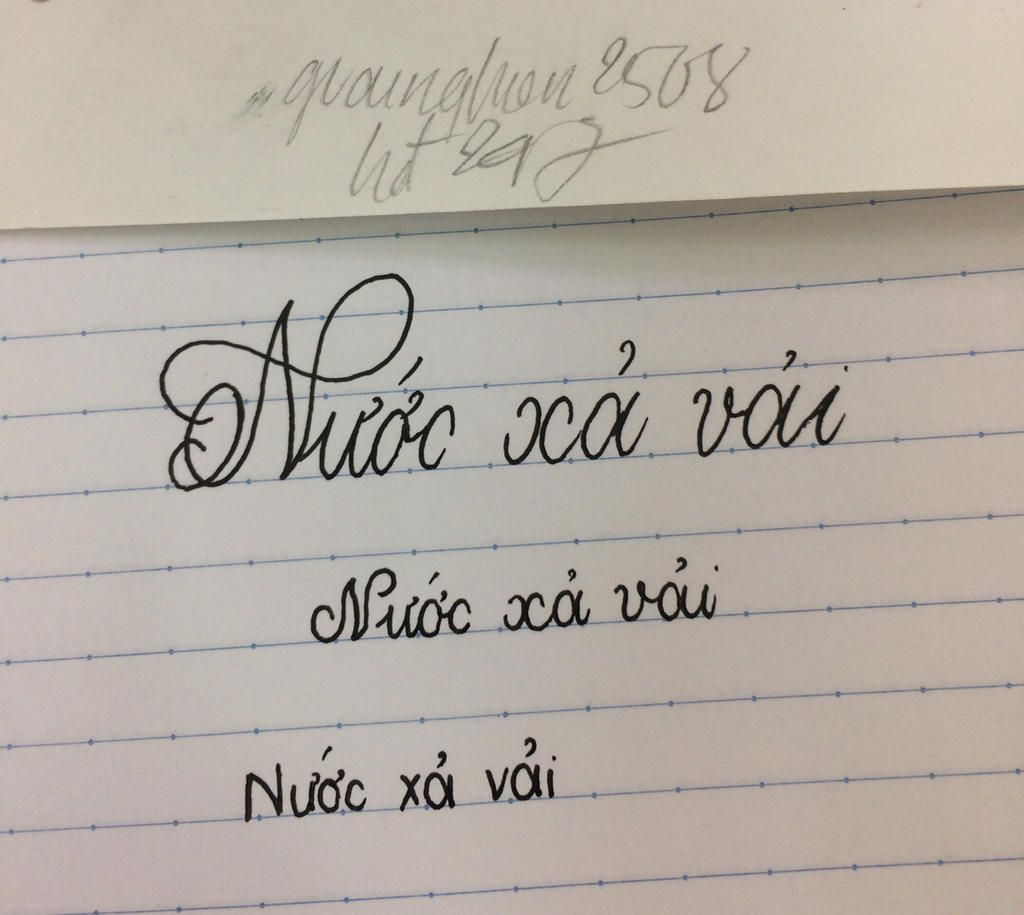 quanghen2508
hđ 297
Nước xả vải
Nước xả vải
Nước xả vải